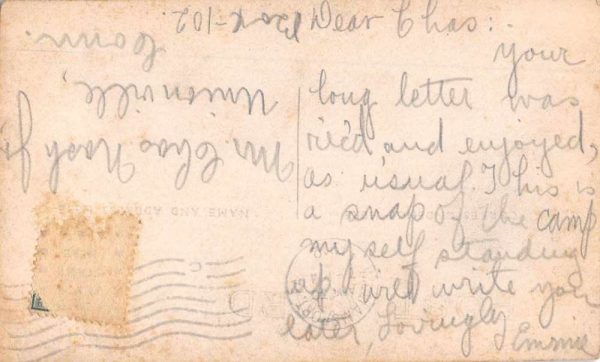 Dear Chas:.
your
long letter was
rec'd and enjoyed,
as usual. This is
a snap of the camp
myself standing
up will write you
later, Lovingly
Emmie
Mr. Chas Nash Jr.
Unionville,
Conn.
Box-102
NAME AND ADDRESS